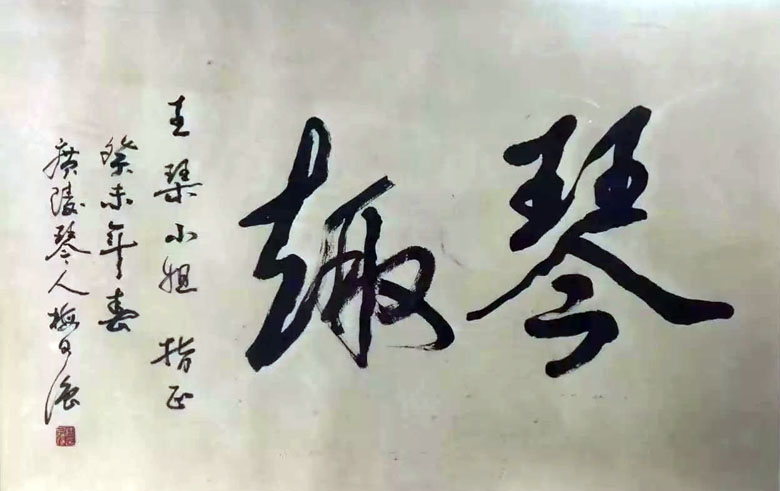 琴趣
王琹小姐 指正
癸未年春
廣陵琴人梅曰强